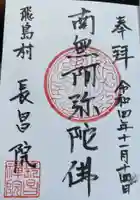 奉拝
令和四年十一月十四日
南無阿弥陀佛
飛島村
長昌院